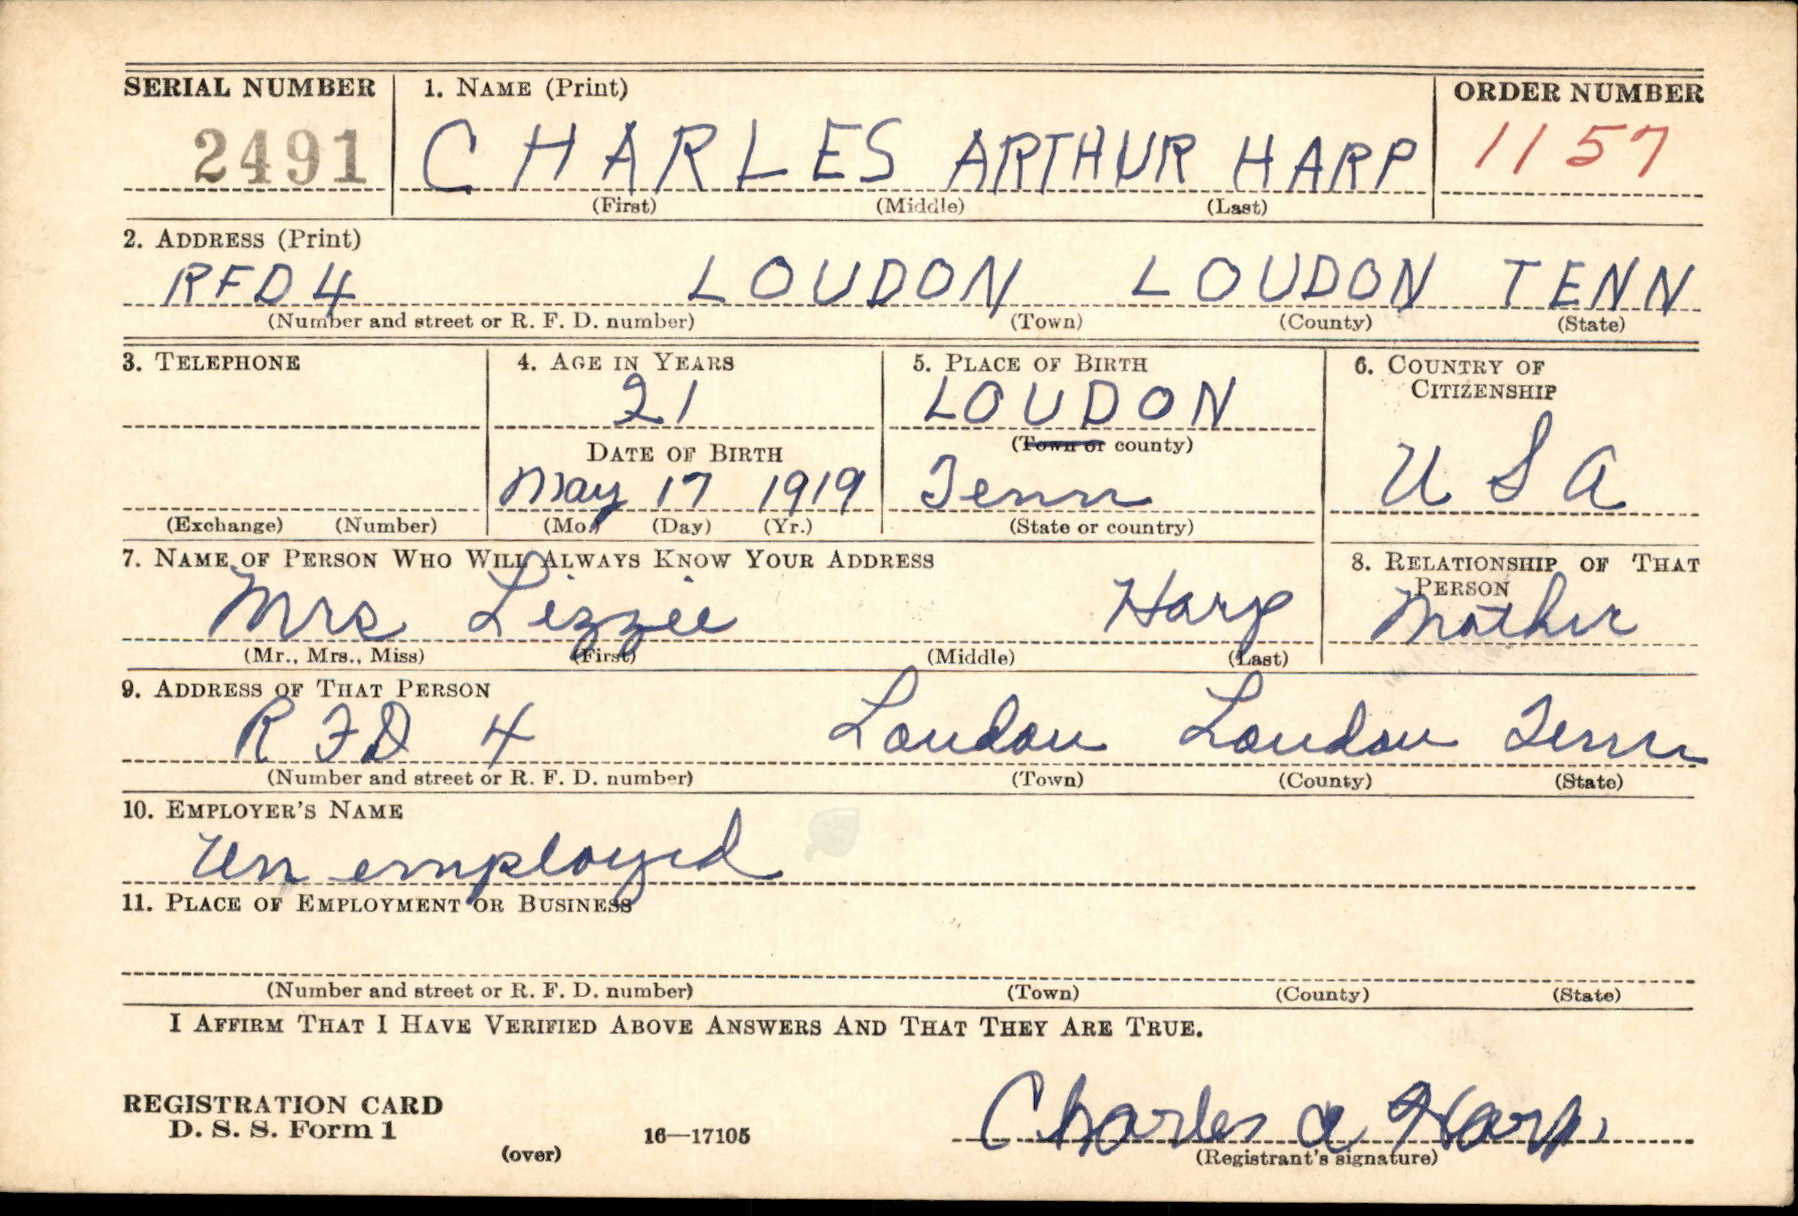 SERIAL NUMBER 1. NAME (Print) ORDER NUMBER
2491 CHARLES ARTHUR HARP 1157
(First) (Middle) (Last)
2. ADDRESS (Print)
RFD 4 LOUDON LOUDON TENN
(Number and street or R. F. D. number) (Town) (County) (State)
3. TELEPHONE 4. AGE IN YEARS 5. PLACE OF BIRTH 6. COUNTRY OF CITIZENSHIP
21 LOUDON
DATE OF BIRTH (Town or county)
May 17 1919 Tenn U S A
(Exchange) (Number) (Mo.) (Day) (Yr.) (State or country)
7. NAME OF PERSON WHO WILL ALWAYS KNOW YOUR ADDRESS 8. RELATIONSHIP OF THAT PERSON
Mrs Lizzie Harp Mother
(Mr., Mrs., Miss) (First) (Middle) (Last)
9. ADDRESS OF THAT PERSON
R F D 4 Loudon Loudon Tenn
(Number and street or R. F. D. number) (Town) (County) (State)
10. EMPLOYER'S NAME
Un employed
11. PLACE OF EMPLOYMENT OR BUSINESS
(Number and street or R. F. D. number) (Town) (County) (State)
I AFFIRM THAT I HAVE VERIFIED ABOVE ANSWERS AND THAT THEY ARE TRUE.
REGISTRATION CARD
D. S. S. Form 1 16—17105 Charles a Harp
(over) (Registrant's signature)